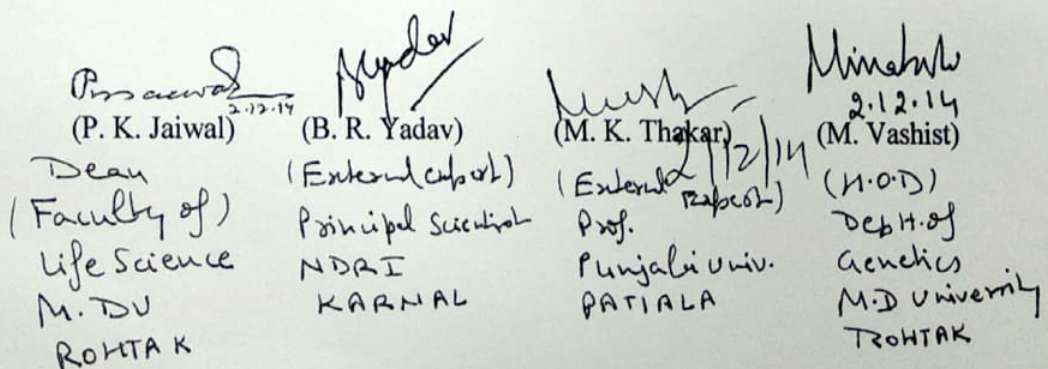 2.12.14
(P. K. Jaiwal)
Dean
(Faculty of)
Life Science
M. DU
ROHTAK
(B. R. Yadav)
(External expert)
Principal Scientist
NDRI
KARNAL
(M. K. Thakar)
2/12/14
(External Expert)
Prof.
Punjabi Univ.
PATIALA
2.12.14
(M. Vashist)
(H.O.D)
Deptt. of
Genetics
M.D University
ROHTAK